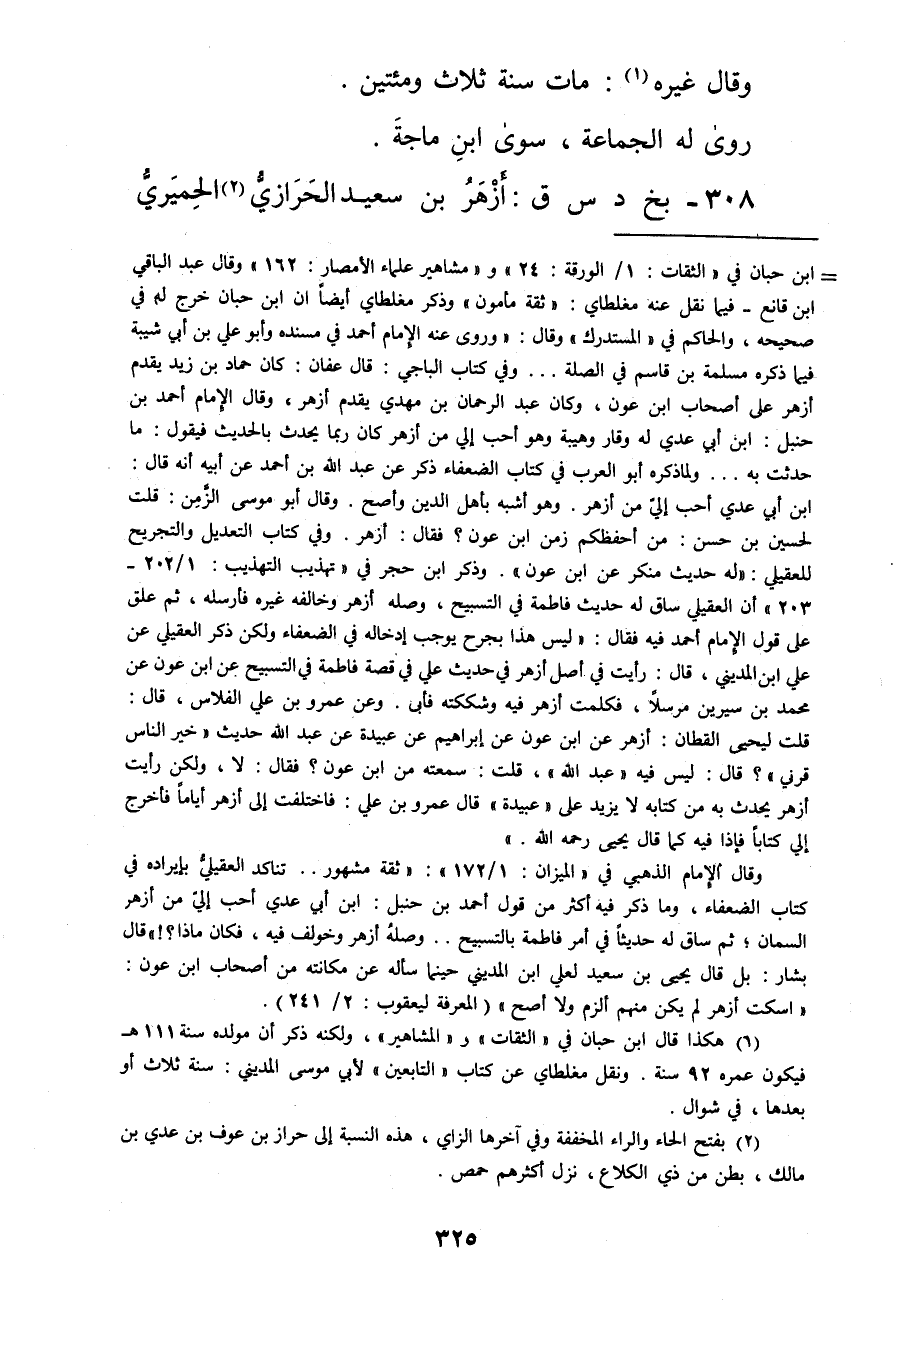 وقال غيره(١) : مات سنة ثلاث ومئتين .
روىٰ له الجماعة ، سوىٰ ابنِ ماجةَ .
٣٠٨ـ بخ د س ق : أَزْهَرُ بن سعيد الحَرَازيُّ(٢) الحِميَريُّ
= ابن حبان في « الثقات : ١/ الورقة : ٢٤ » و « مشاهير علماء الأمصار : ١٦٢ » وقال عبد الباقي
ابن قانع ـ فيما نقل عنه مغلطاي : « ثقة مأمون » وذكر مغلطاي أيضاً ان ابن حبان خرج له في
صحيحه ، والحاكم في « المستدرك » وقال : « وروى عنه الإمام أحمد في مسنده وأبو علي بن أبي شيبة
فيما ذكره مسلمة بن قاسم في الصلة ... وفي كتاب الباجي : قال عفان : كان حماد بن زيد يقدم
أزهر على أصحاب ابن عون ، وكان عبد الرحمان بن مهدي يقدم أزهر ، وقال الإمام أحمد بن
حنبل : ابن أبي عدي له وقار وهيبة وهو أحب إلي من أزهر كان ربما يحدث بالحديث فيقول : ما
حدثت به ... ولماذكره أبو العرب في كتاب الضعفاء ذكر عن عبد الله بن أحمد عن أبيه أنه قال :
ابن أبي عدي أحب إليّ من أزهر . وهو أشبه بأهل الدين وأصح . وقال أبو موسى الزَّمِن : قلت
لحسين بن حسن : من أحفظكم زمن ابن عون ؟ فقال : أزهر . وفي كتاب التعديل والتجريح
للعقيلي : «له حديث منكر عن ابن عون» . وذكر ابن حجر في « تهذيب التهذيب : ٢٠٢/١ ـ
٢٠٣ » أن العقيلي ساق له حديث فاطمة في التسبيح ، وصله أزهر وخالفه غيره فأرسله ، ثم علق
على قول الإمام أحمد فيه فقال : « ليس هذا بجرح يوجب إدخاله في الضعفاء ولكن ذكر العقيلي عن
علي ابن المديني ، قال : رأيت في أصل أزهر في حديث علي في قصة فاطمة في التسبيح عن ابن عون عن
محمد بن سيرين مرسلاً ، فكلمت أزهر فيه وشككته فأبى . وعن عمرو بن علي الفلاس ، قال :
قلت ليحيى القطان : أزهر عن ابن عون عن إبراهيم عن عبيدة عن عبد الله حديث « خير الناس
قرني » ؟ قال : ليس فيه « عبد الله » ، قلت : سمعته من ابن عون ؟ فقال : لا ، ولكن رأيت
أزهر يحدث به من كتابه لا يزيد على « عبيدة » قال عمرو بن علي : فاختلفت إلى أزهر أياماً فأخرج
إلي كتاباً فإذا فيه كما قال يحيى رحمه الله . »
وقال ألإمام الذهبي في « الميزان : ١٧٢/١ » : « ثقة مشهور .. تناكد العقيليُّ بإيراده في
كتاب الضعفاء ، وما ذكر فيه أكثر من قول أحمد بن حنبل : ابن أبي عدي أحب إليّ من أزهر
السمان ؛ ثم ساق له حديثاً في أمر فاطمة بالتسبيح .. وصلهُ أزهر وخولف فيه ، فكان ماذا؟!» قال
بشار : بل قال يحيى بن سعيد لعلي ابن المديني حينما سأله عن مكانته من أصحاب ابن عون :
« اسكت أزهر لم يكن منهم ألزم ولا أصح » ( المعرفة ليعقوب : ٢/ ٢٤١ ) .
(٦) هكذا قال ابن حبان في « الثقات » و « المشاهير » ، ولكنه ذكر أن مولده سنة ١١١ هـ
فيكون عمره ٩٢ سنة . ونقل مغلطاي عن كتاب « التابعين » لأبي موسى المديني : سنة ثلاث أو
بعدها ، في شوال .
(٢) بفتح الحاء والراء المخففة وفي آخرها الزاي ، هذه النسبة إلى حراز بن عوف بن عدي بن
مالك ، بطن من ذي الكلاع ، نزل أكثرهم حمص .
٣٢٥